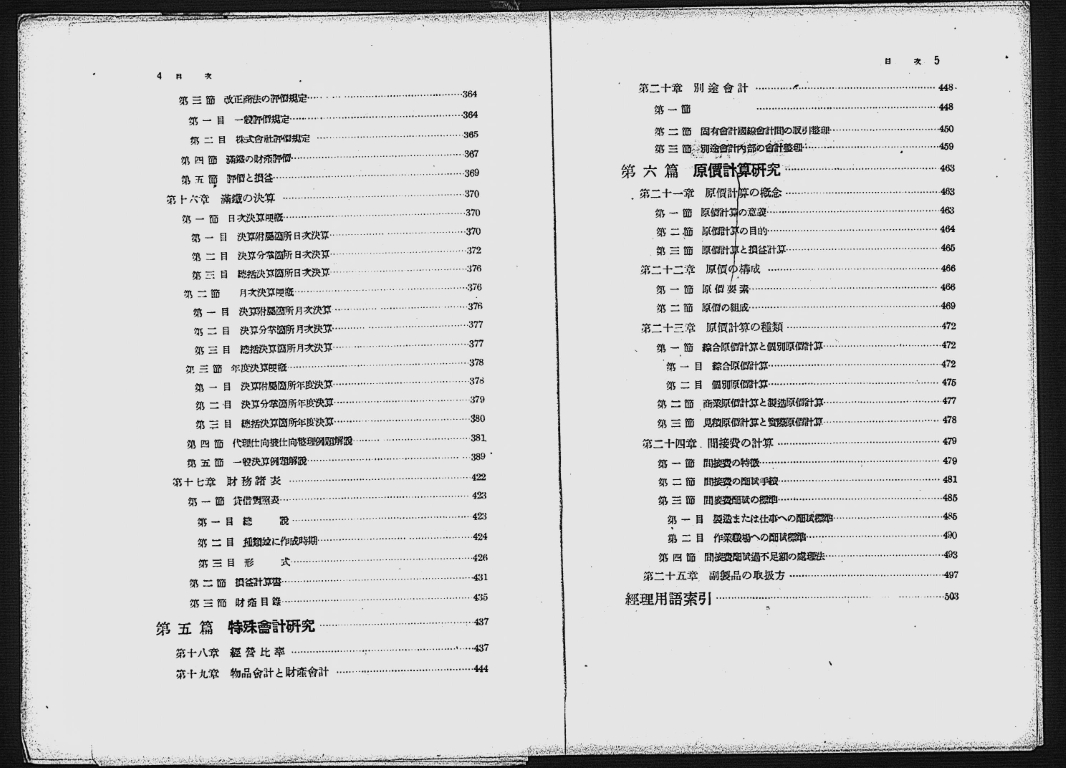 4 目 次
第三節 改正商法の評價規定 364
第一目 一般評價規定 364
第二目 株式會社評價規定 365
第四節 滿鐵の財產評價 367
第五節 評價と損益 369
第十六章 滿鐵の決算 370
第一節 日次決算硬概 370
第一目 決算附屬箇所日次決算 370
第二目 決算分掌箇所日次決算 372
第三目 總括決算箇所日次決算 376
第二節 月次決算 376
第一目 決算附屬箇所月次決算 376
第二目 決算分掌箇所月次決算 377
第三目 總括決算箇所月次決算 377
第三節 年度決算 378
第一目 決算附屬箇所年度決算 378
第二目 決算分掌箇所年度決算 379
第三目 總括決算箇所年度決算 380
第四節 代理仕向被仕向整理例題解說 381
第五節 一般決算例題解說 389
第十七章 財務諸表 422
第一節 貸借對照表 423
第一目 總說 423
第二目 種類並に作成時期 424
第三目 形式 426
第二節 損益計算書 431
第三節 財產目錄 435
第五篇 特殊會計硏究 437
第十八章 經營比率 437
第十九章 物品會計と財產會計 444
目 次 5
第二十章 別途會計 448
第一節 448
第二節 固有會計國線會計間の取引整理 450
第三節 別途會計內部の會計整理 459
第六篇 原價計算硏究 463
第二十一章 原價計算の槪念 463
第一節 原價計算の意義 463
第二節 原價計算の目的 464
第三節 原價計算と損益計算 465
第二十二章 原價の構成 466
第一節 原價要素 466
第二節 原價の組成 469
第二十三章 原價計算の種類 472
第一節 綜合原價計算と個別原價計算 472
第一目 綜合原價計算 472
第二目 個別原價計算 475
第二節 商業原價計算と製造原價計算 477
第三節 見積原價計算と實際原價計算 478
第二十四章 間接費の計算 479
第一節 間接費の特徵 479
第二節 間接費の配賦手段 481
第三節 間接費配賦の標準 485
第一目 製造または仕事への配賦標準 485
第二目 作業職場への配賦標準 490
第四節 間接費配賦過不足額の處理法 493
第二十五章 副製品の取扱方 497
經理用語索引 503